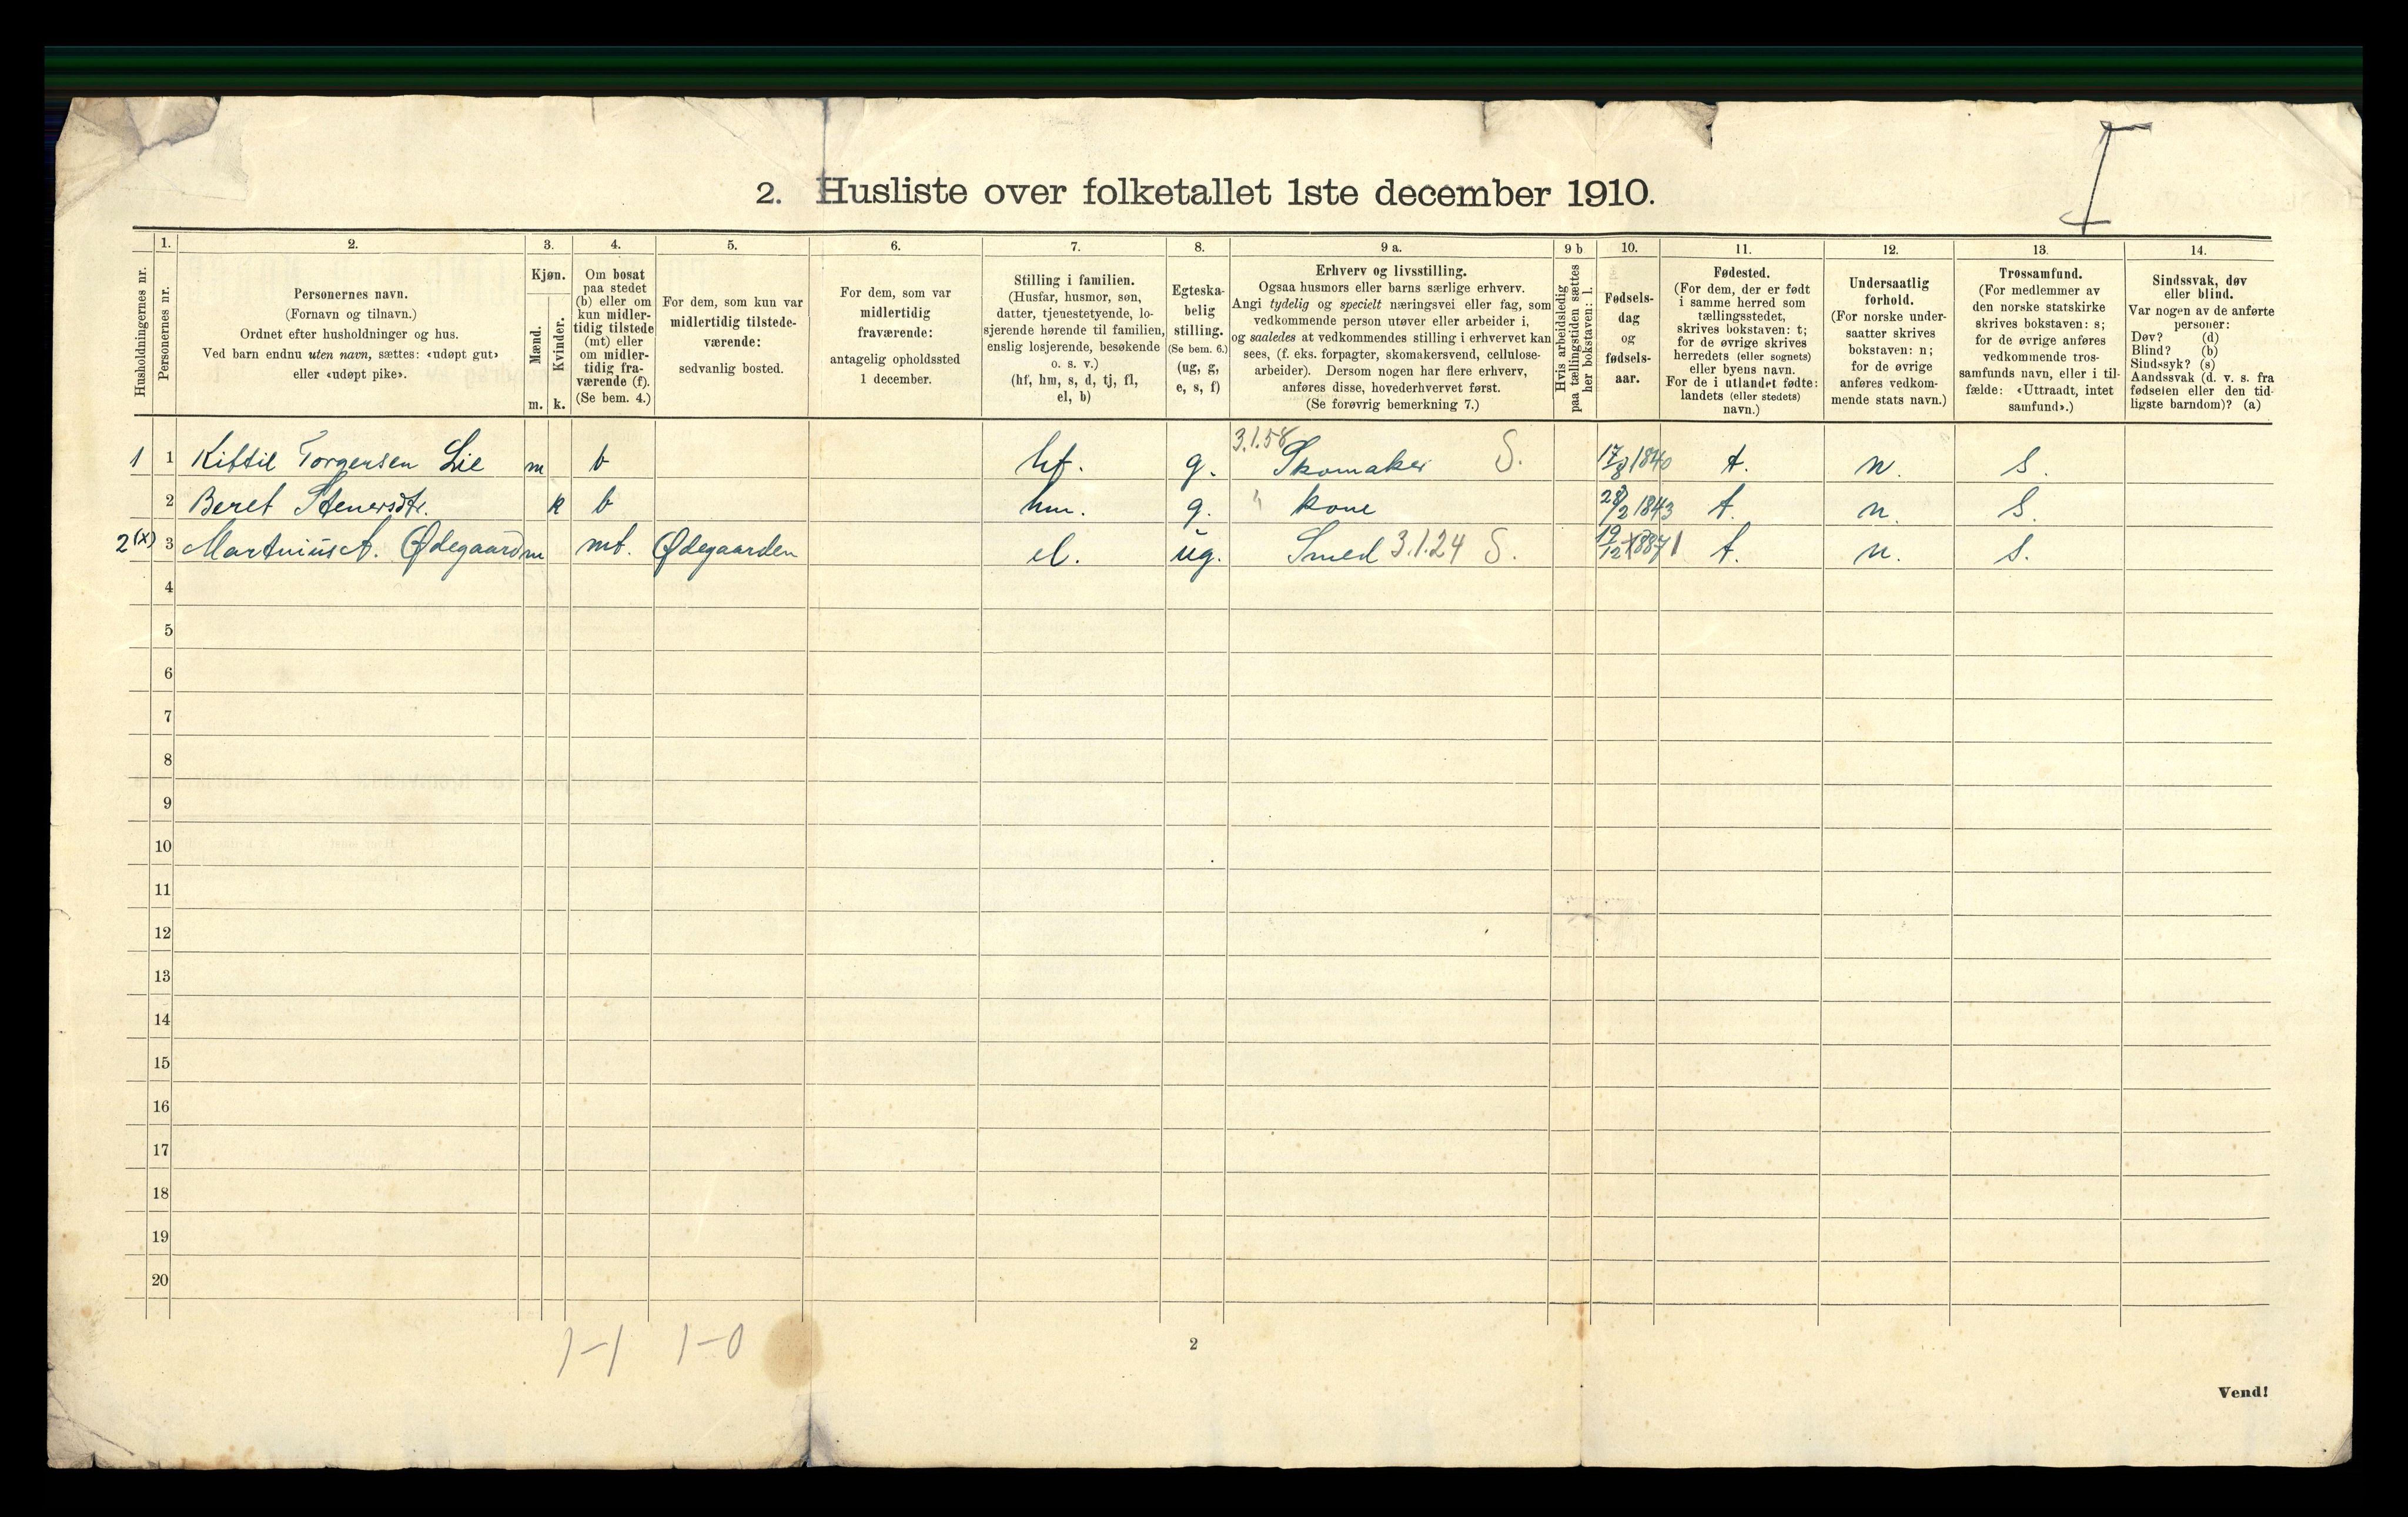 2. Husliste over folketallet 1ste december 1910.
Husholdningernes nr.
1.
Personernes nr.
2.
Personernes navn.
(Fornavn og tilnavn.)
Ordnet efter husholdninger og hus.
Ved barn endnu uten navn, sættes: «udøpt gut»
eller «udøpt pike».
3.
Kjøn.
Mænd.
Kvinder.
m. k.
4.
Om bosat
paa stedet
(b) eller om
kun midler-
tidig tilstede
(mt) eller
om midler-
tidig fra-
værende (f).
(Se bem. 4.)
5.
For dem, som kun var
midlertidig tilstede-
værende:
sedvanlig bosted.
6.
For dem, som var
midlertidig
fraværende:
antagelig opholdssted
1 december.
7.
Stilling i familien.
(Husfar, husmor, søn,
datter, tjenestetyende, lo-
sjerende hørende til familien,
enslig losjerende, besøkende
o. s. v.)
(hf, hm, s, d, tj, fl,
el, b)
8.
Egteska-
belig
stilling.
(Se bem. 6.)
(ug, g,
e, s, f)
9 a.
Erhverv og livsstilling.
Ogsaa husmors eller barns særlige erhverv.
Angi tydelig og specielt næringsvei eller fag, som
vedkommende person utøver eller arbeider i,
og saaledes at vedkommendes stilling i erhvervet kan
sees, (f. eks. forpagter, skomakersvend, cellulose-
arbeider). Dersom nogen har flere erhverv,
anføres disse, hovederhvervet først.
(Se forøvrig bemerkning 7.)
9 b
Hvis arbeidsledig
paa tællingstiden sættes
her bokstaven: l.
10.
Fødsels-
dag
og
fødsels-
aar.
11.
Fødested.
(For dem, der er født
i samme herred som
tællingsstedet,
skrives bokstaven: t;
for de øvrige skrives
herredets (eller sognets)
eller byens navn.
For de i utlandet fødte:
landets (eller stedets)
navn.)
12.
Undersaatlig
forhold.
(For norske under-
saatter skrives
bokstaven: n;
for de øvrige
anføres vedkom-
mende stats navn.)
13.
Trossamfund.
(For medlemmer av
den norske statskirke
skrives bokstaven: s;
for de øvrige anføres
vedkommende tros-
samfunds navn, eller i til-
fælde: «Uttraadt, intet
samfund».)
14.
Sindssvak, døv
eller blind.
Var nogen av de anførte
personer:
Døv? (d)
Blind? (b)
Sindssyk? (s)
Aandssvak (d. v. s. fra
fødselen eller den tid-
ligste barndom)? (a)
1 1 Kittil Torgersen Lie m b hf. g. 3.1.58 Skomaker S. 17/8 1840 t. n. s.
2 Beret Stenersdtr. k b hm. g. " kone 28/2 1843 t. n. s.
2 (x) 3 Martinius A. Ødegaard m mt. Ødegaarden el. ug. Smed 3.1.24 S. 19/12 1887 t. n. s.
4
5
6
7
8
9
10
11
12
13
14
15
16
17
18
19
20
1-1 1-0
2
Vend!